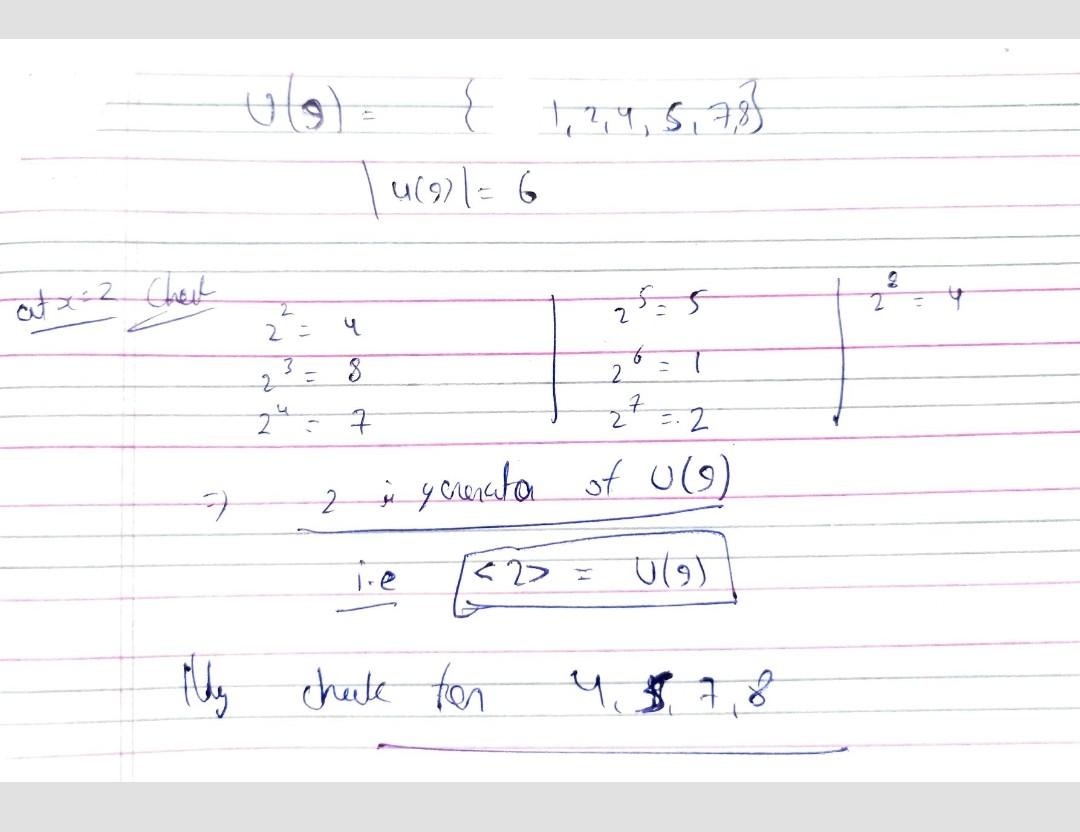 U(9) = { 1, 2, 4, 5, 7, 8}
|U(9)| = 6
at x=2 Check
2² = 4
2³ = 8
2⁴ = 7
2⁵ = 5
2⁶ = 1
2⁷ = 2
2⁸ = 4
⇒ 2 is generator of U(9)
i.e <2> = U(9)
|||ly check for 4, 5, 7, 8